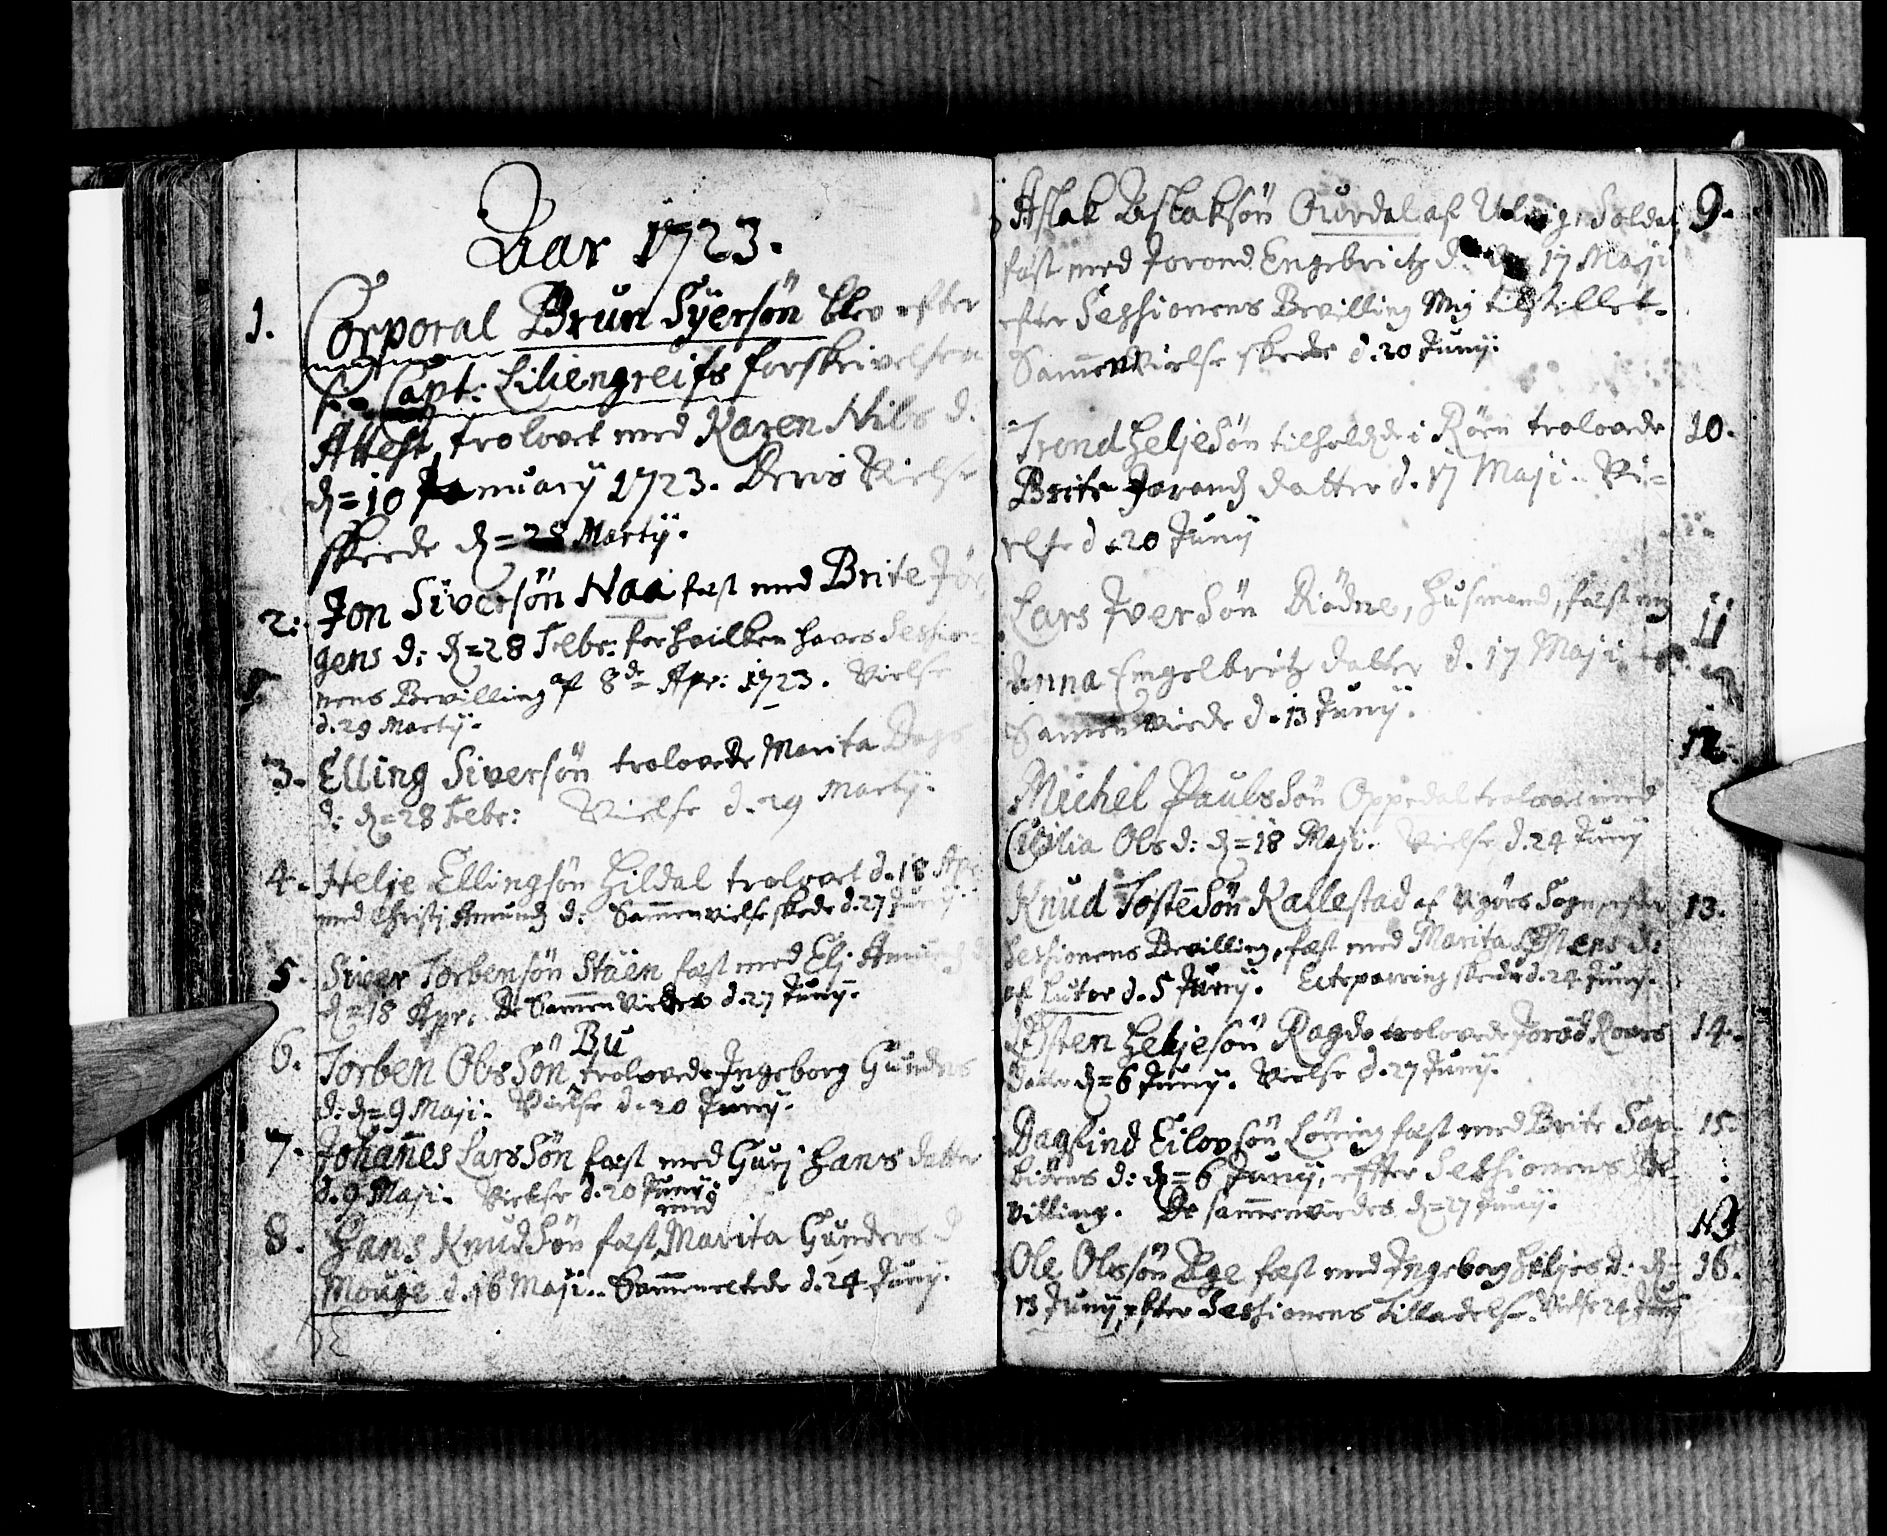 Aar 1723.
1. Corporal Brun Syersøn blev efter
Capt: Liliengreifs forskrivelse
Attest trolovet med Karen Nils d.
d=10 January 1723. Deris Vielse
skeede d=28 Martij.
2: Jon Siversøn Naa fæst med Brite Jør
gens d: d=28 Febr: for hvilken haves Sessio-
nens Bevilling af 8de Apr: 1723. Vielse
d. 29 Martij.
3. Elling Siversøn trolovede Marita Dags
d: d=28 Febr: Vielse d. 29 Martij.
4. Helje Ellingsøn Hildal trolovet d. 18 Apr
med Christj Amunds d: Sammenvielse skede d. 27 Junij.
5. Siver Torbensøn Stäen fæst med Elj Amunds d
d=18 Apr: De Sammen Viedes d. 27 Junij.
Bu
6. Torben Olssøn trolovede Ingeborg Gunders
d: d=9 Maji. Vielse d. 20 Junij.
7. Johañes Larssøn fæst med Gurj Hans datter
d. 9 Maji. Vielse d. 20 Junij
med
8. Hans Knudsøn fæst Marita Gunders d
Mouge d. 16 Maji. Sammen d. 24 Junij.
Aslak Aslaksøn Øurdal af Soldat 9.
fæst med Jorond Engebritz d. 17 Maji
efter Sessionens Bevilling Mig tilstillet.
Samenvielse skede d. 20 Junij.
Trond Heljesøn i Røen trolovede 10.
Brite Joronds datter d. 17 Maji. Vi-
else d. 20 Junij
Lars Iversøn Diödne, Husmand, fæst m 11
Anna Engelbritz datter d. 17 Maji
Samenviede d. 13 Junij.
12.
Michel Paulssøn Oppedal trolovet med
Cicilia Ols d: d=18 Maji. Vielse d. 24 Junij
Knud Tostensøn Kallestad af Vigørs Sogn, efter 13.
Sessionens Bevilling, fæst med Marita Østens d:
af Lutoe d. 5 Junij. skede d. 24 Junij.
Østen Heljesøn Ragde trolovede Jorød Roars 14.
Datter d=6 Junij. Vielse d. 27 Junij.
Dagfind Eilovsøn Løning fæst med Brite Tor- 15.
biørns d: d=6 Junij, effter Sessionens Be-
villing. De samenviedes d=27 Junij.
NB
Ole Olssøn Age fæst med Ingeborg Heljes d: d= 16.
13 Junij, efter Sessionens Tilladelse. Vielse 24 Junij